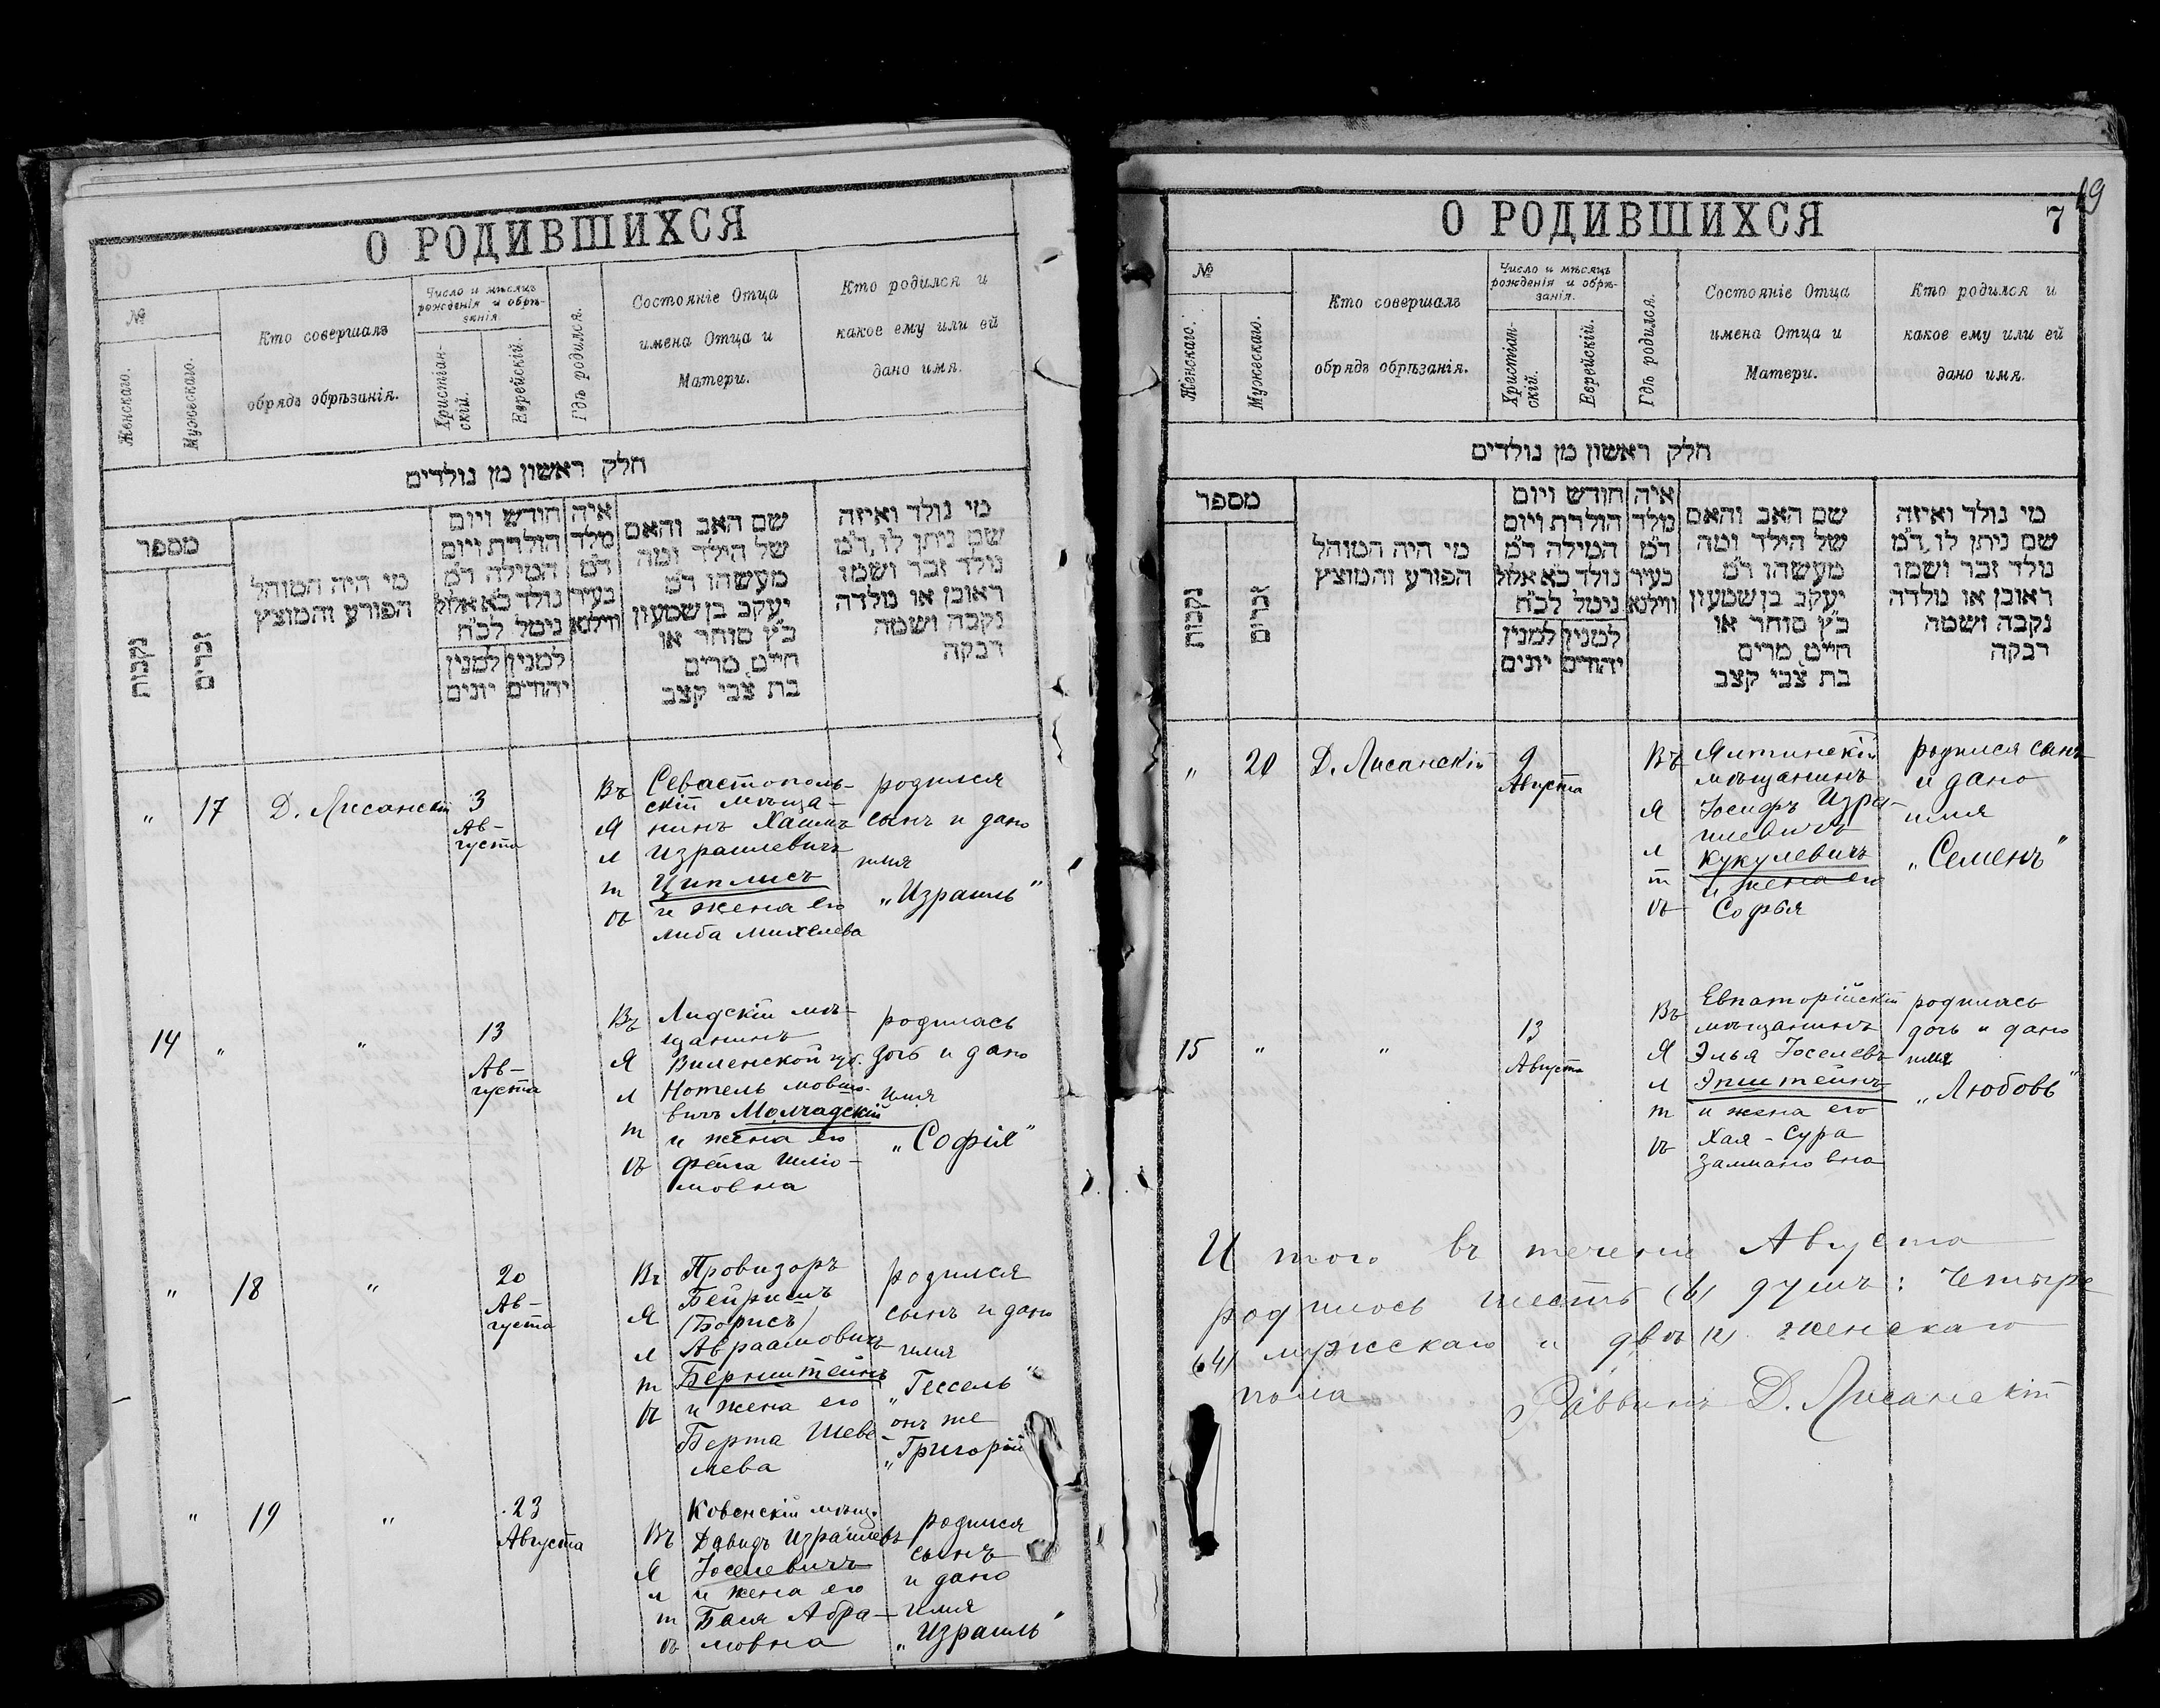 О РОДИВШИХСЯ
№
Женскаго.
Мужескаго.
Кто совершалъ
обрядъ обрѣзанія.
Число и мѣсяцъ
рожденія и обрѣ-
занія.
Христіан-
скій.
Еврейскій.
Гдѣ родился.
Состояніе Отца
имена Отца и
Матери.
Кто родился и
какое ему или ей
дано имя.
חלק ראשון מן נולדים
מספר
נקבות
זכרים
מי היה המוהל
הפורע והמוצץ
חודש ויום
הולדת ויום
המילה ד״מ
נולד כ״א אלול
נימל לכ״ח
למנין
יונים
למנין
יהודים
איה
מלד
ד״מ
בעיר
ווילנא
שם האב והאם
של הילד ומה
מעשהו ד״מ
יעקב בן שמעון
כ״ץ סוחר או
חייט, מרים
בת צבי קצב
מי נולד ואיזה
שם ניתן לו, ד״מ
נולד זכר ושמו
ראובן או נולדה
נקבה ושמה
רבקה
„ 17 Д. Лисанскій
3
Ав-
густа
Въ
Я
л
т
ѣ
Севастополь-
скій мѣща-
нинъ Хаимъ
Израилевичъ
Циплисъ
и жена его
Либа Михелева
родился
сынъ и дано
имя
„Израиль"
14 „ „
13
Ав-
густа
Въ
Я
л
т
ѣ
Лидскій мѣ-
щанинъ
Виленской губ.
Нотель Мовшо-
вичъ Молчадскій
и жена его
Фейга Шліо-
мовна
родилась
дочь и дано
имя
„Софія"
„ 18 „
20
Ав-
густа
Въ
Я
л
т
ѣ
Провизоръ
Бейришъ
(Борисъ)
Авраамовичъ
Бернштейнъ
и жена его
Берта Шеве-
лева
родился
сынъ и дано
имя
„Гессель"
онъ же
„Григорій
„ 19 „
23
Августа
Въ
Я
л
т
ѣ
Ковенскій мѣщ.
Давидъ Израилевъ
Іоселевичъ
и жена его
Бася Абра-
мовна
родился
сынъ
и дано
имя
„Израиль"
О РОДИВШИХСЯ
7
19
№
Женскаго.
Мужескаго.
Кто совершалъ
обрядъ обрѣзанія.
Число и мѣсяцъ
рожденія и обрѣ-
занія.
Христіан-
скій.
Еврейскій.
Гдѣ родился.
Состояніе Отца
имена Отца и
Матери.
Кто родился и
какое ему или ей
дано имя.
חלק ראשון מן נולדים
מספר
נקבות
זכרים
מי היה המוהל
הפורע והמוצץ
חודש ויום
הולדת ויום
המילה ד״מ
נולד כ״א אלול
נימל לכ״ח
למנין
יונים
למנין
יהודים
איה
מלד
ד״מ
בעיר
ווילנא
שם האב והאם
של הילד ומה
מעשהו ד״מ
יעקב בן שמעון
כ״ץ סוחר או
חייט, מרים
בת צבי קצב
מי נולד ואיזה
שם ניתן לו, ד״מ
נולד זכר ושמו
ראובן או נולדה
נקבה ושמה
רבקה
„ 20 Д. Лисанскій
9
Августа
Въ
Я
л
т
ѣ
Ялтинскій
мѣщанинъ
Іосифъ Изра-
илевичъ
Кукулевичъ
и жена его
Софья
родился сынъ
и дано
имя
„Семенъ"
15 „ „
13
Августа
Въ
Я
л
т
ѣ
Евпаторійскій
мѣщанинъ
Элья Іоселевъ
Эпштейнъ
и жена его
Хая-Сура
Залмановна
родилась
дочь и дано
имя
„Любовь"
Итого въ теченіи Августа
родилось шесть (6) душъ: четыре
(4) мужскаго и двѣ (2) женскаго
пола Раввинъ Д. Лисанскій